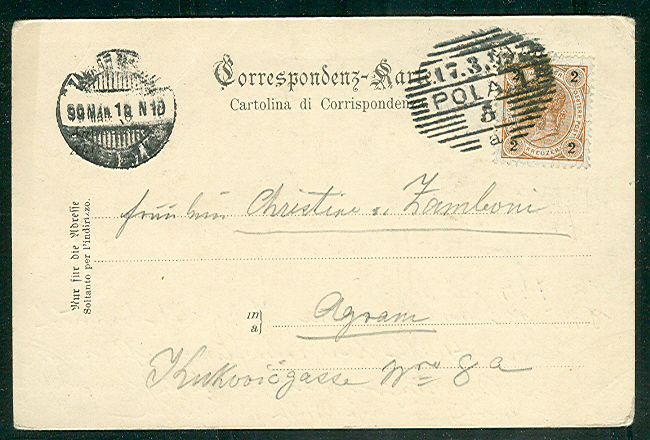 Correspondenz-Karte
Cartolina di Corrispondenza
17.3.
POLA 1
a
2 2
2 2
KREUZER
99 MAR 18 N 10
Nur für die Adresse
Soltanto per l'indirizzo.
Fräulein Christine v. Zamboni
in
a
Agram
Kukovićgasse Nro 8a